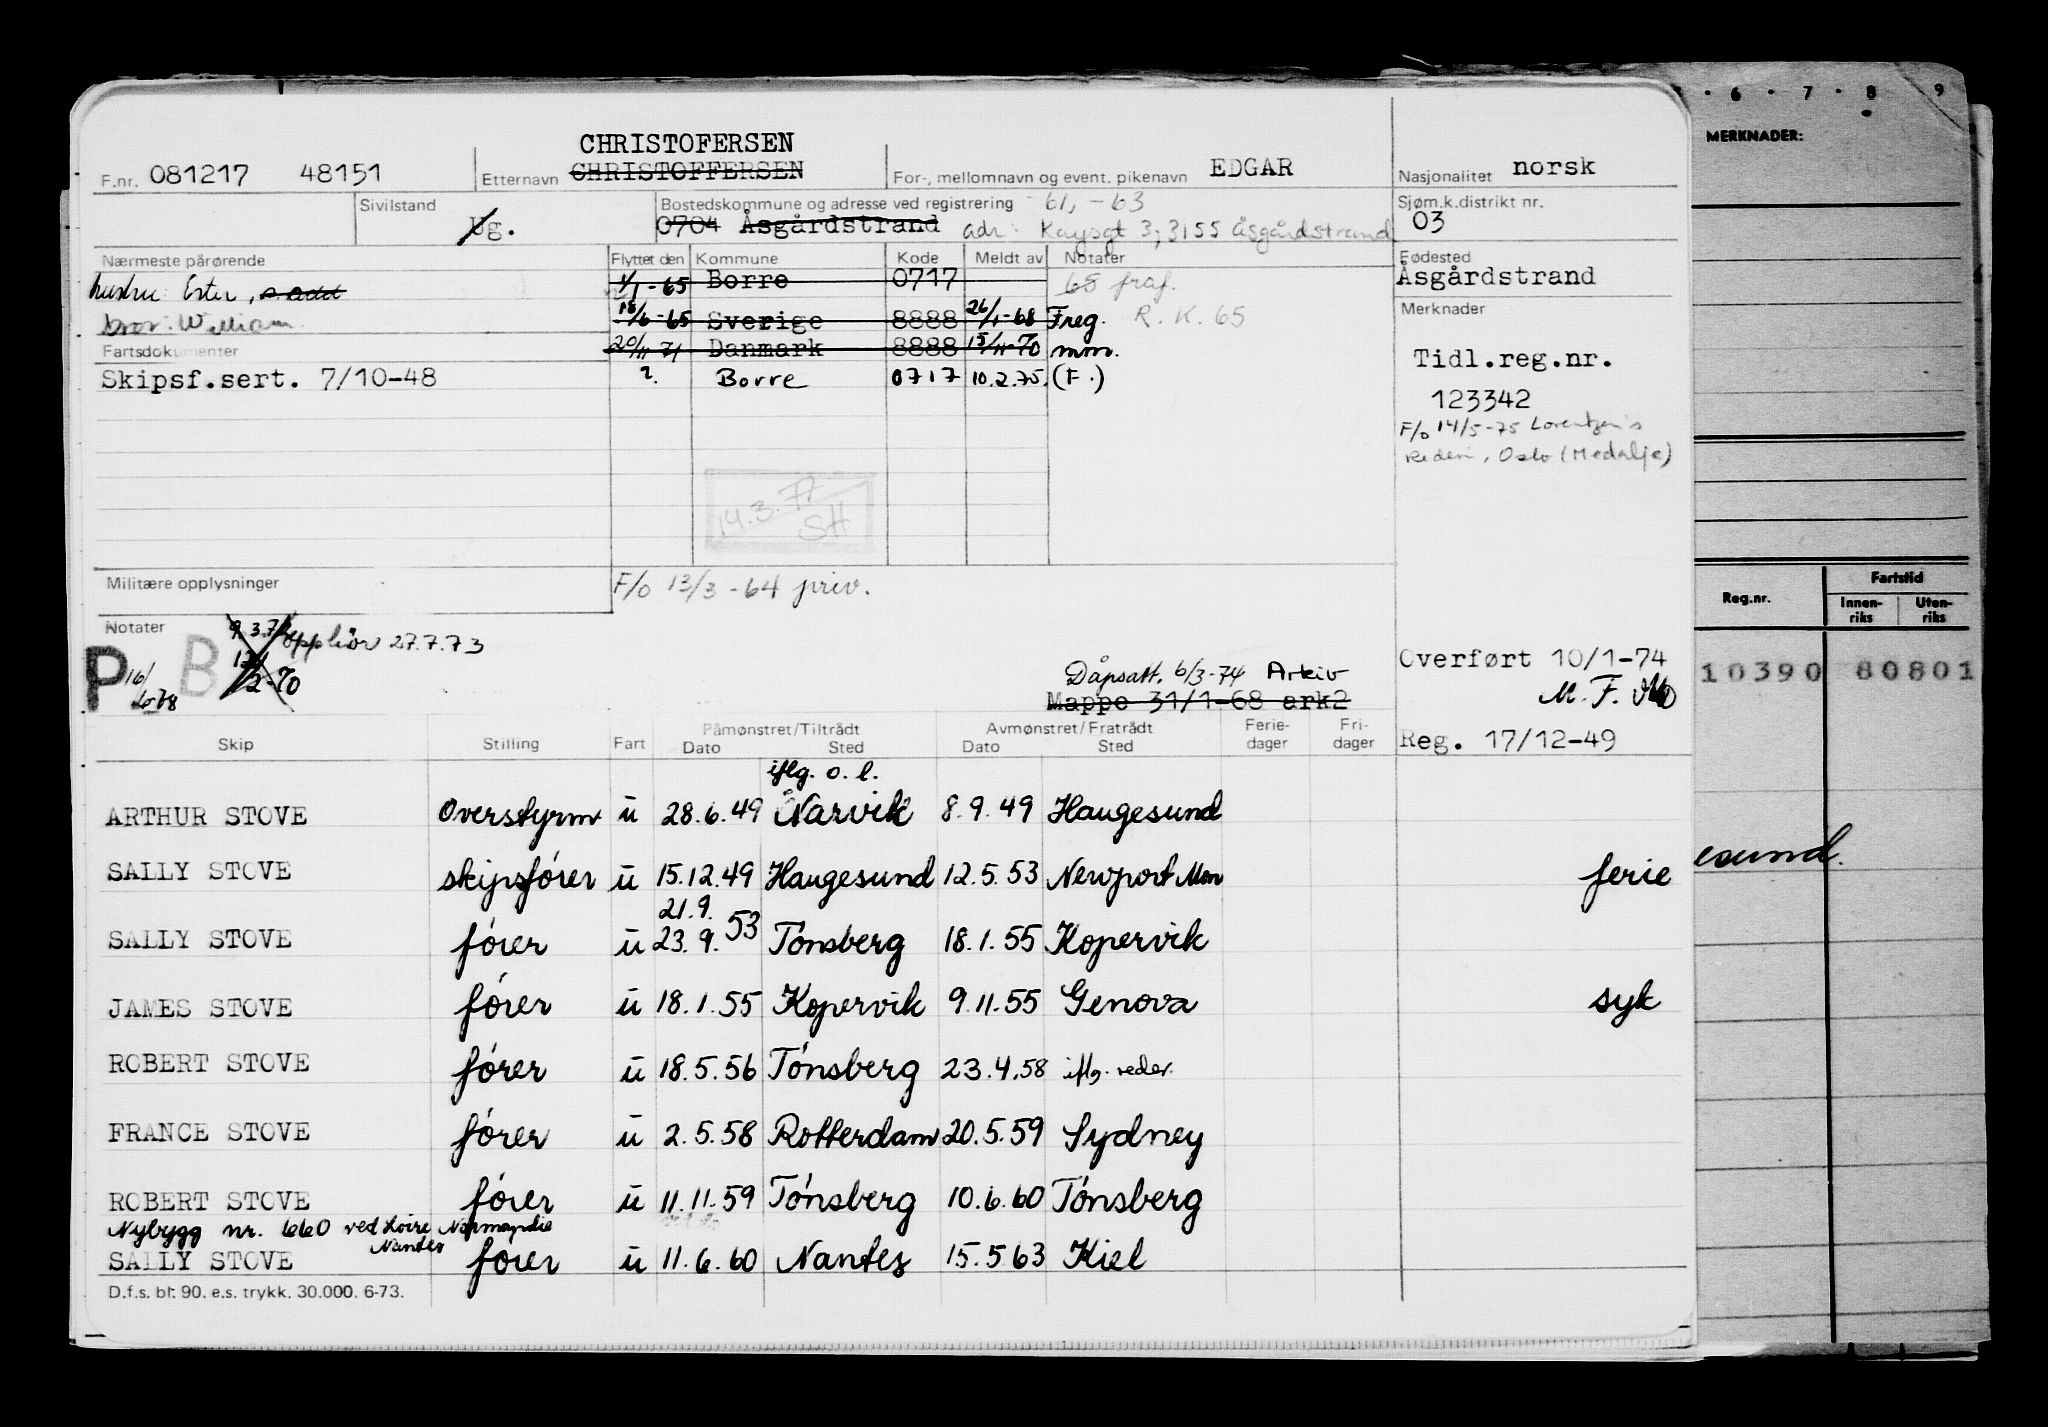 CHRISTOFERSEN
F.nr. 081217 48151 Etternavn CHRISTOFFERSEN For-, mellomnavn og event. pikenavn EDGAR Nasjonalitet norsk
Sivilstand Ug. Bostedskommune og adresse ved registrering 61, -63 Sjøm.k.distrikt nr. 03
0704 Åsgårdstrand adr: Kaysgt 3, 3155 Åsgårdstrand
Nærmeste pårørende Flyttet den Kommune Kode Meldt av Notater Fødested
hustru Ester, s add 1/1-65 Borre 0717 65 fraf. Åsgårdstrand
bror: William 18/6-65 Sverige 8888 26/1-68 Freg. R. K. 65 Merknader
Fartsdokumenter 20/11 71 Danmark 8888 15/11-70 mm. Tidl.reg.nr.
Skipsf.sert. 7/10-48 ?. Borre 0717 10.2.75. (F.)
123342
F/o 14/5-75 Lorentzen's
Rederi, Oslo (Medalje)
14.3.77
SH
Militære opplysninger F/o 13/3-64 priv.
Notater
opphör 27.7.73
P 16/ B 2-70
Dåpsatt. 6/3-74 Arkiv Overført 10/1-74
Mappe 31/1-68 ark2 M. F.
Skip Stilling Fart Påmønstret/Tiltrådt Dato Sted Avmønstret/Fratrådt Dato Sted Ferie-dager Fri-dager Reg. 17/12-49
iflg. o. l.
ARTHUR STOVE Overstyrm u 28.6.49 Narvik 8.9.49 Haugesund
SALLY STOVE skipsfører u 15.12.49 Haugesund 12.5.53 Newport Mon ferie
21.9.
SALLY STOVE fører u 23.9.53 Tønsberg 18.1.55 Kopervik
JAMES STOVE fører u 18.1.55 Kopervik 9.11.55 Genova syk
ROBERT STOVE fører u 18.5.56 Tønsberg 23.4.58 iflg. reder.
FRANCE STOVE fører u 2.5.58 Rotterdam 20.5.59 Sydney
ROBERT STOVE fører u 11.11.59 Tønsberg 10.6.60 Tønsberg
Nybygg nr. 660 ved Loire Normandie
Nantes
SALLY STOVE fører u 11.6.60 Nantes 15.5.63 Kiel
D.f.s. bl. 90. e.s. trykk. 30.000. 6-73.
· 6 · 7 · 8 9
MERKNADER:
Reg.nr. Fartstid
Innen-riks Uten-riks
10390 80801
esund.